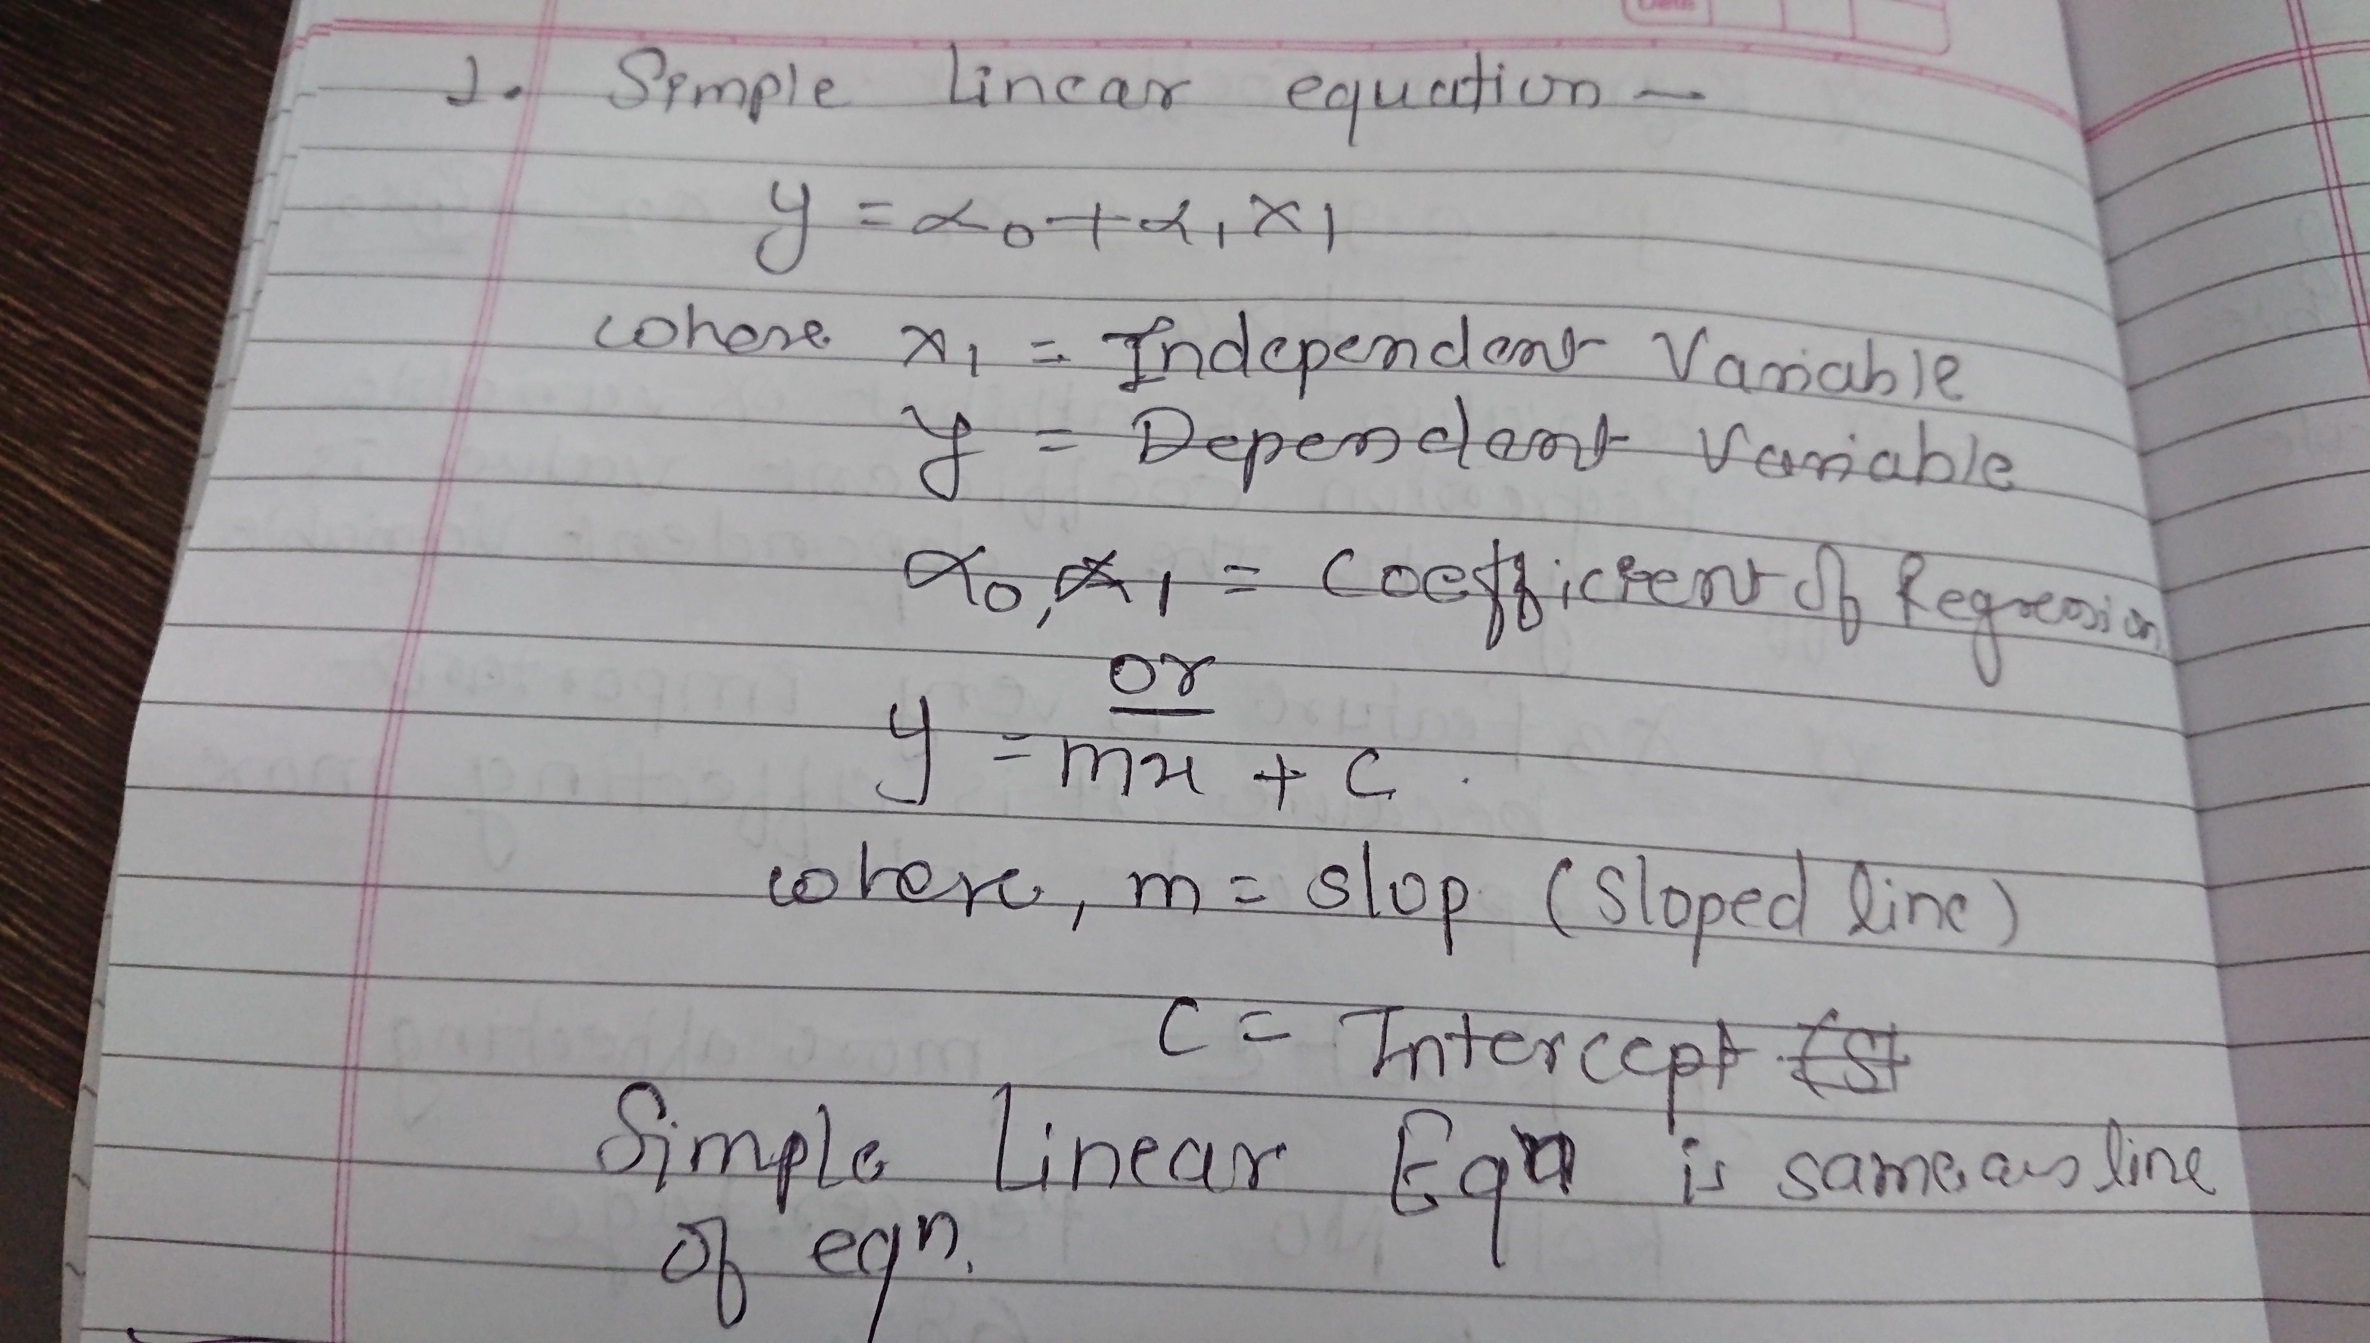 Date
1. Simple linear equation -
y = α₀ + α₁ x1
where x₁ = Independent Variable
y = Dependent Variable
α₀, α₁ = Coefficient of Regression
or
y = mx + c .
where, m = slop (Sloped line)
C = Intercept (St
Simple Linear Eqn is same as line
of eqn.